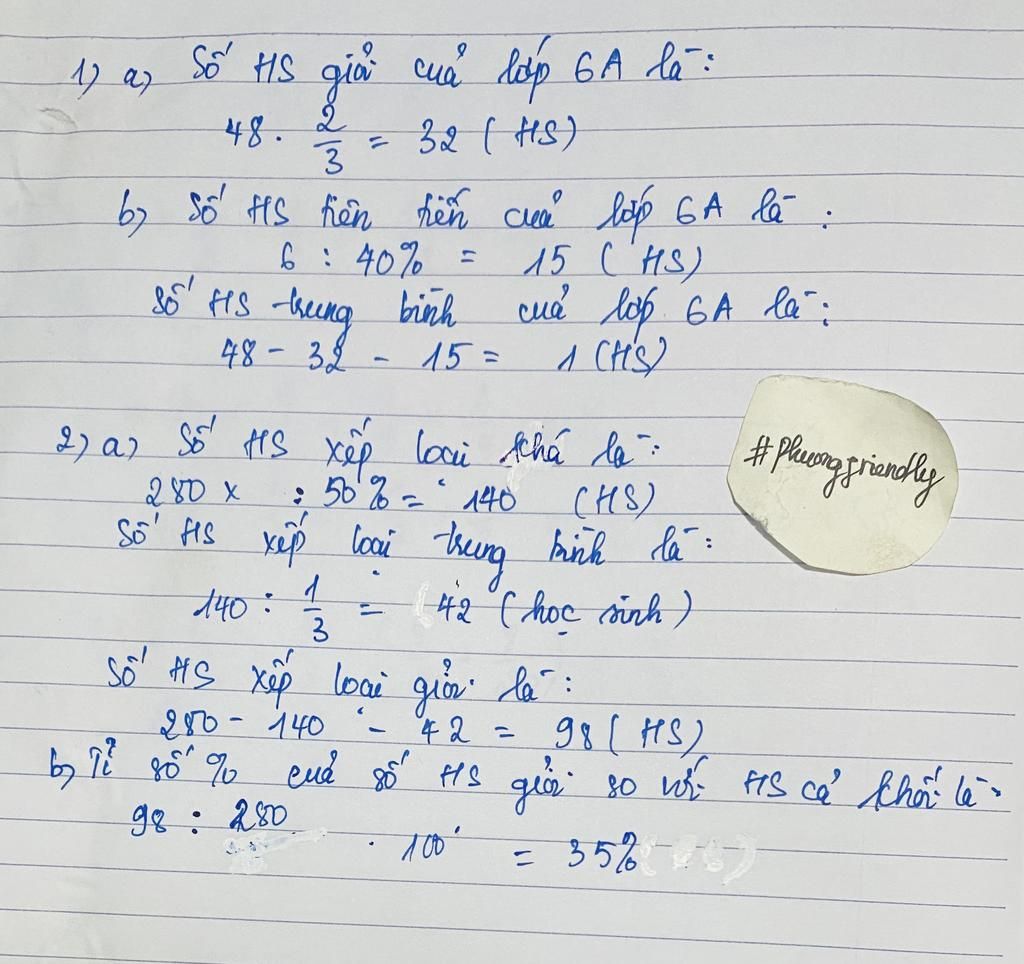 1) a) Số HS giỏi của lớp 6A là:
48 . 2/3 = 32 ( HS)
b) Số HS tiên tiến của lớp 6A là :
6 : 40% = 15 ( HS)
Số HS trung bình của lớp 6A là:
48 - 32 - 15 = 1 (HS)
2) a) Số HS xếp loại khá là:
280 x : 50% = 140 (HS)
#Phuongfriendly
Số HS xếp loại trung bình là:
140 : 1/3 = 42 ( học sinh )
Số HS xếp loại giỏi là:
280 - 140 - 42 = 98 ( HS)
b) Tỉ số % của số HS giỏi so với HS cả khối là:
98 : 280 . 100 = 35%